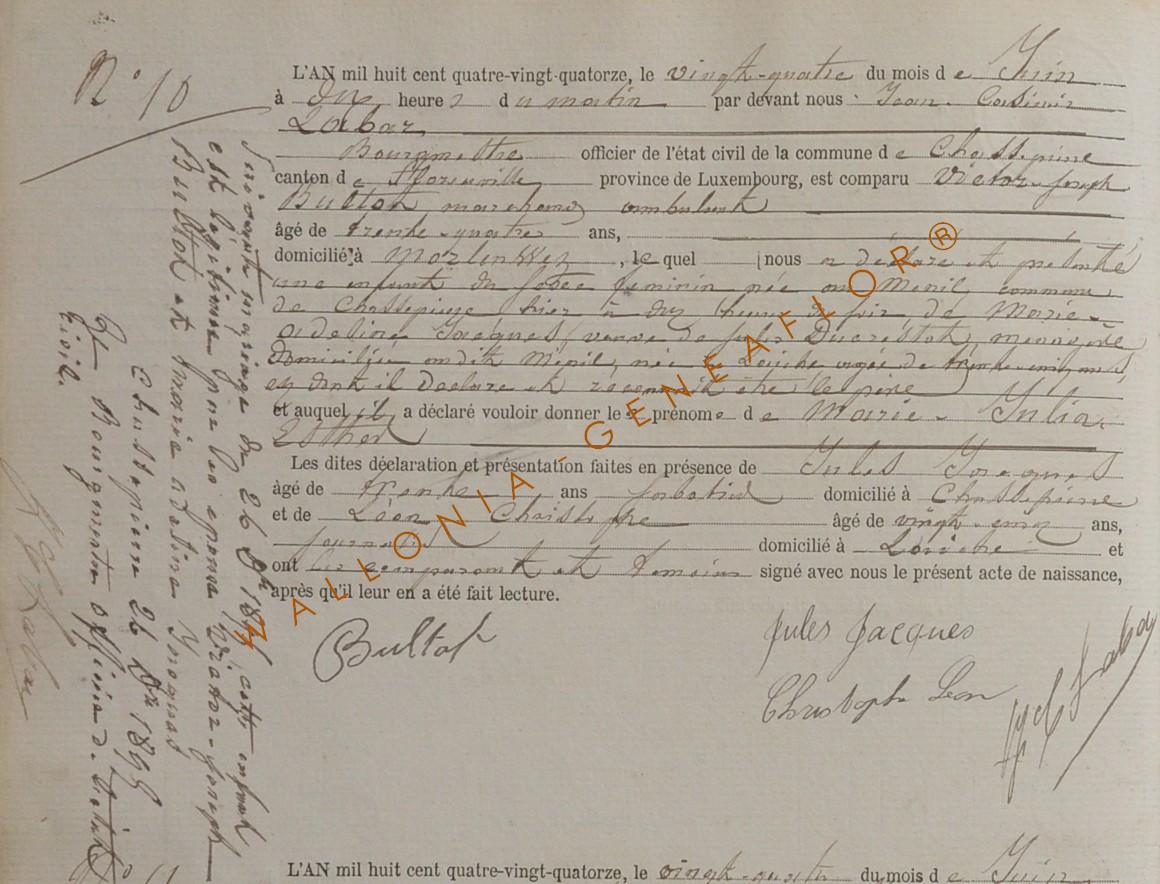 N° 10
L'AN mil huit cent quatre-vingt-quatorze, le vingt-quatre du mois de Juin
à dix heures du matin par devant nous Jean - Casimir
Labar
Bourgmestre officier de l'état civil de la commune de Chassepierre
canton de Florenville province de Luxembourg, est comparu Victor-Joseph
Bultot marchand ambulant
âgé de trente-quatre ans,
domicilié à , lequel nous a déclaré et présenté
une enfant du sexe féminin née au Menil, commune
de Chassepierre hier à dix heures du soir de Marie-
Adeline Jacques, veuve de Ducrétot, ménagère
domiciliée au dit Menil, née à âgée de trente-cinq ans
et dont il déclare et reconnait être le père
et auquel il a déclaré vouloir donner les prénoms de Marie - Julia
Esther
Les dites déclaration et présentation faites en présence de Jules Jacques
âgé de trente ans domicilié à Chassepierre
et de Léon Christophe âgé de vingt-cinq ans,
domicilié à et
ont les comparant et témoins signé avec nous le présent acte de naissance,
après qu'il leur en a été fait lecture.
Bultot
Jules Jacques
Christophe Leon
JC Labar
Suivant mariage du 26 cette enfant
est légitimée par les époux Victor-Joseph
Bultot et Marie Adeline Jacques
Chassepierre 26 1895
Le Bourgmestre officier de l'état
civil.
JC Labar
WALLONIA - GENEAFLOR ®
L'AN mil huit cent quatre-vingt-quatorze, le vingt-quatre du mois de Juin
N° 11